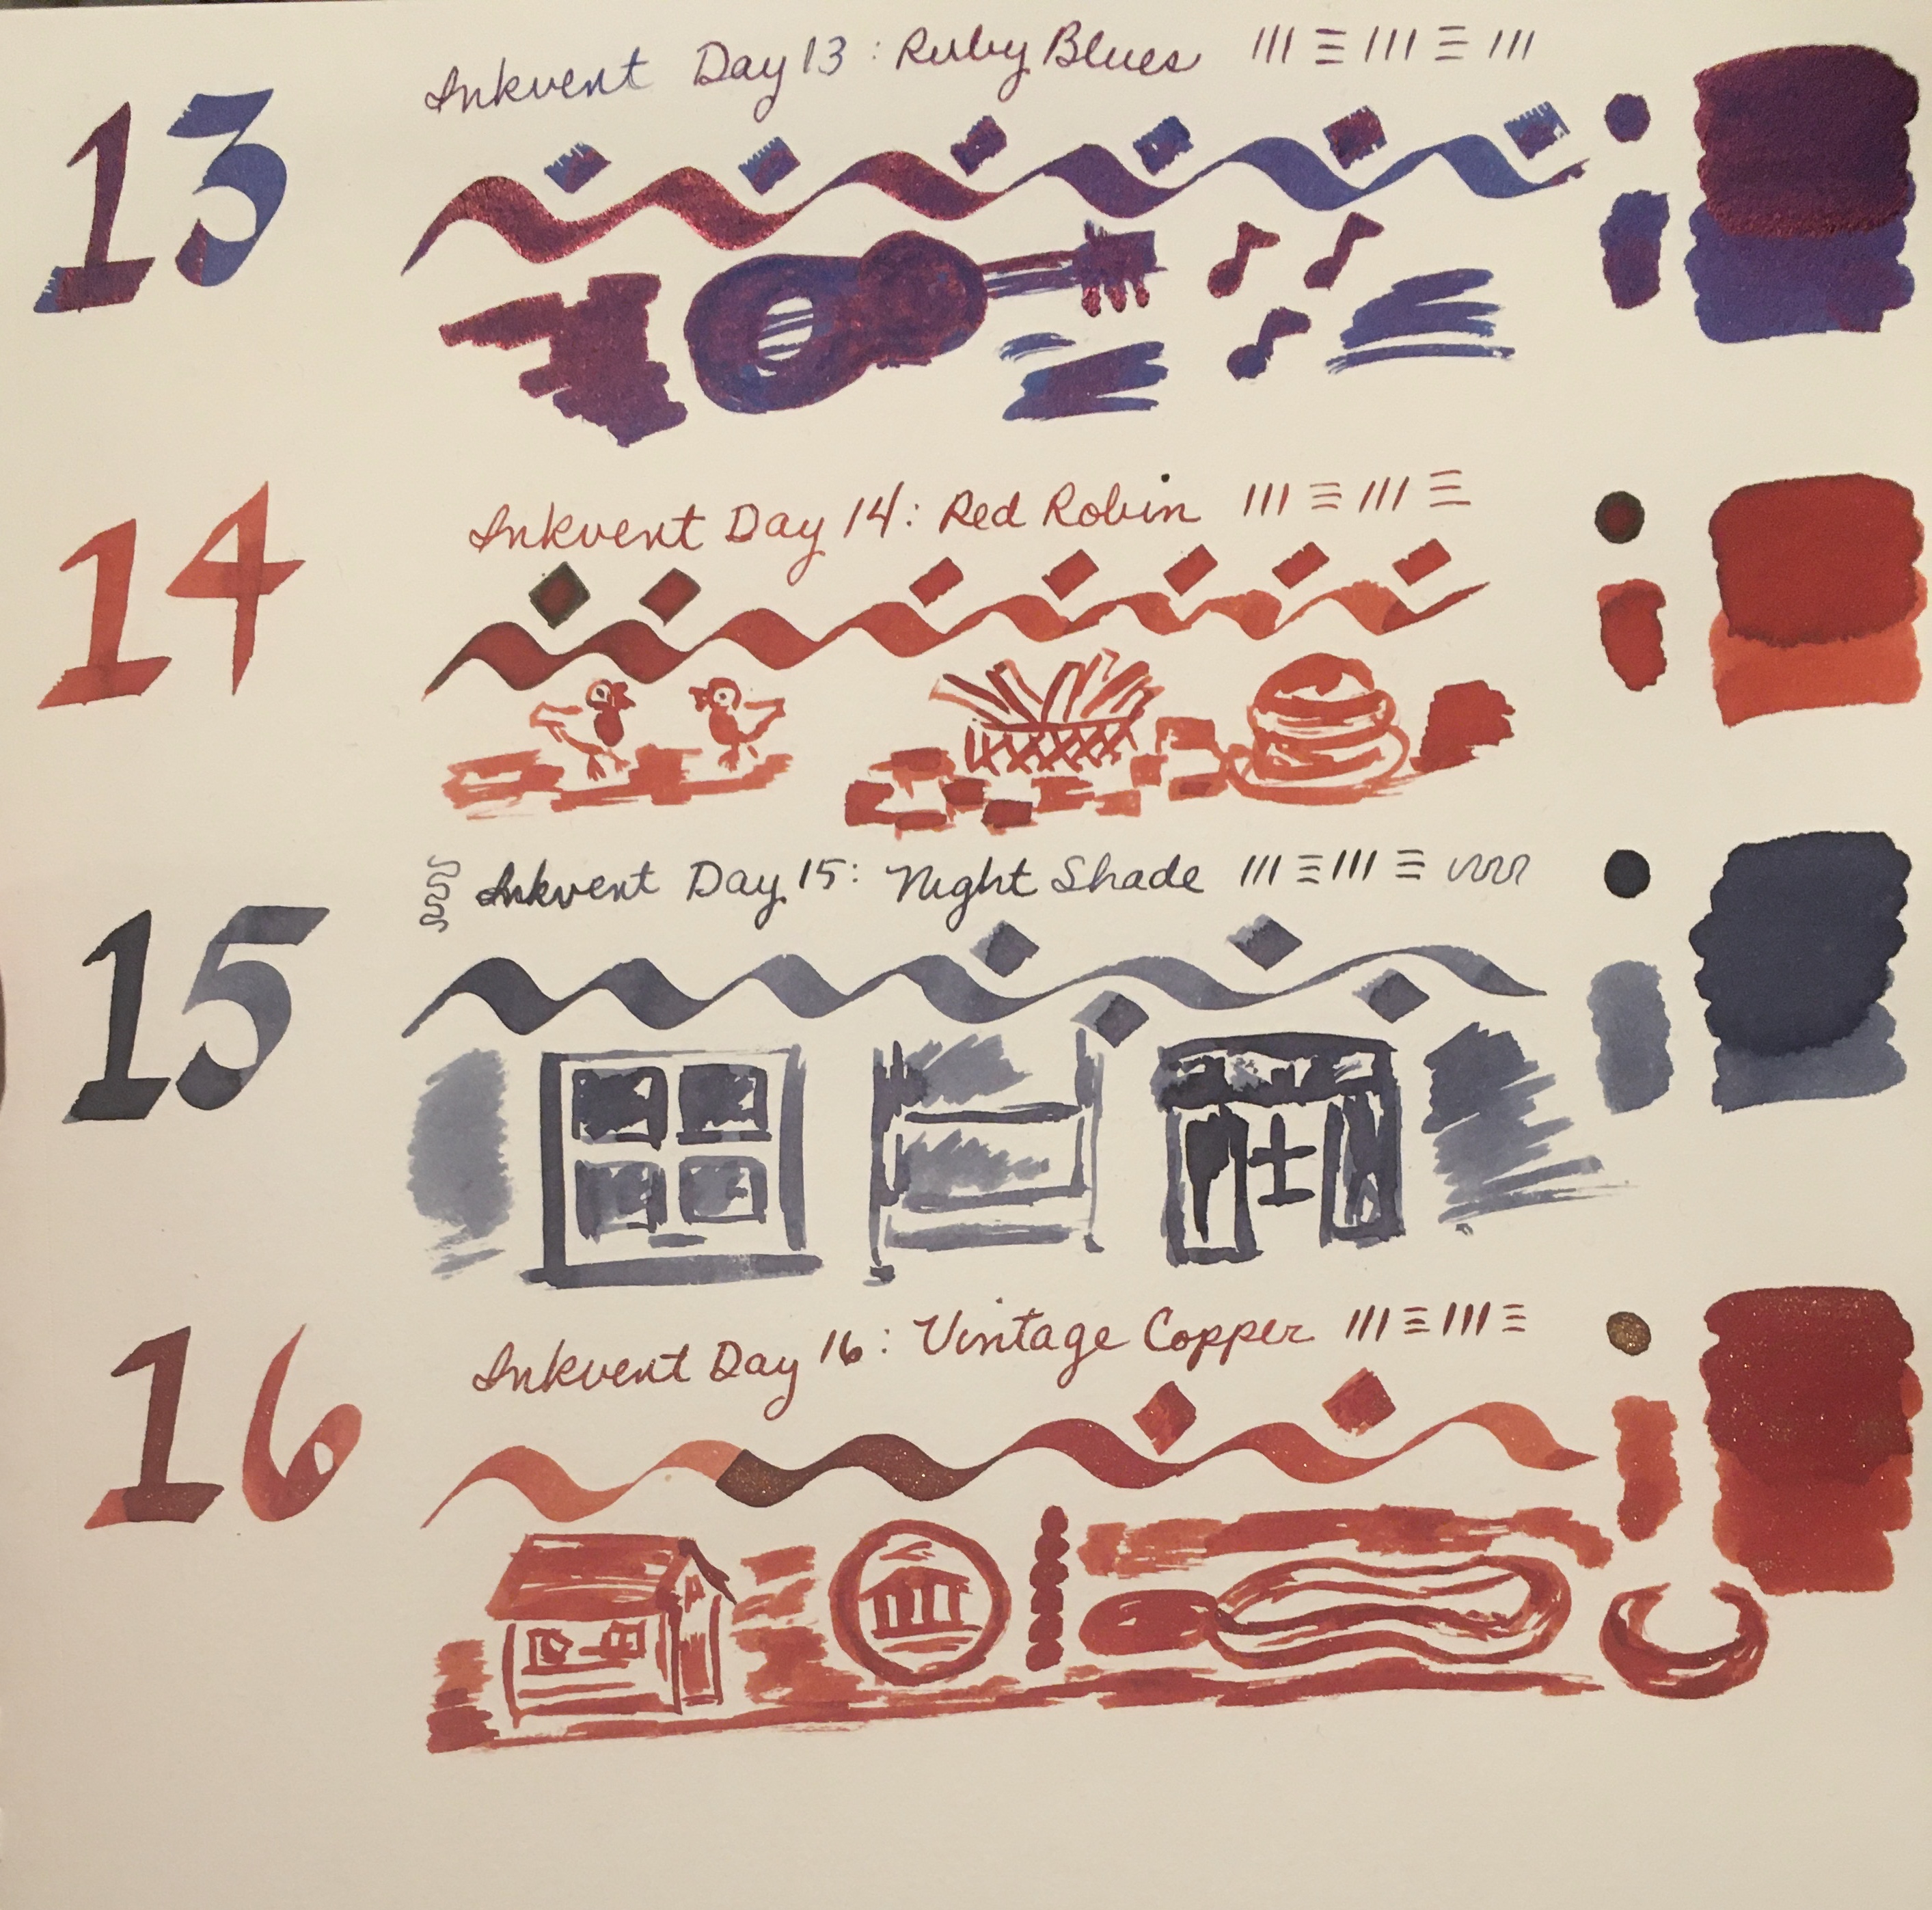 13
Inkvent Day 13: Ruby Blues
14
Inkvent Day 14: Red Robin
15
Inkvent Day 15: Night Shade
16
Inkvent Day 16: Vintage Copper